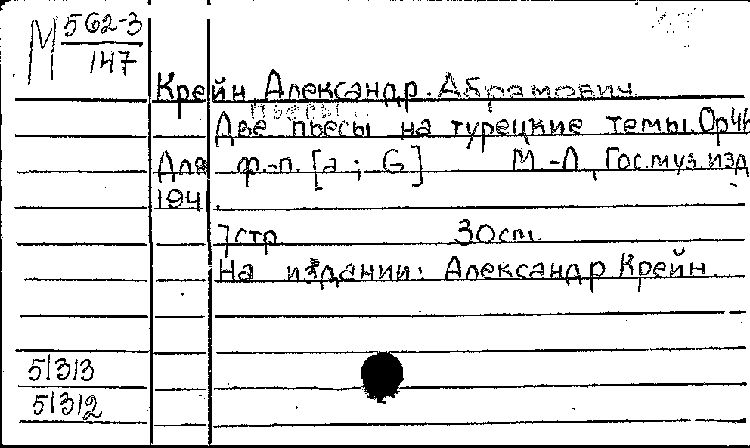 М 562-3
147
Крейн Александр Абрамович
Пьесы
Две пьесы на турецкие темы. Ор 46
Для ф.-п. [a; G] М.-Л., Гос. муз. изд
1941.
7 стр 30 cm.
На издании: Александр Крейн.
51313
51312